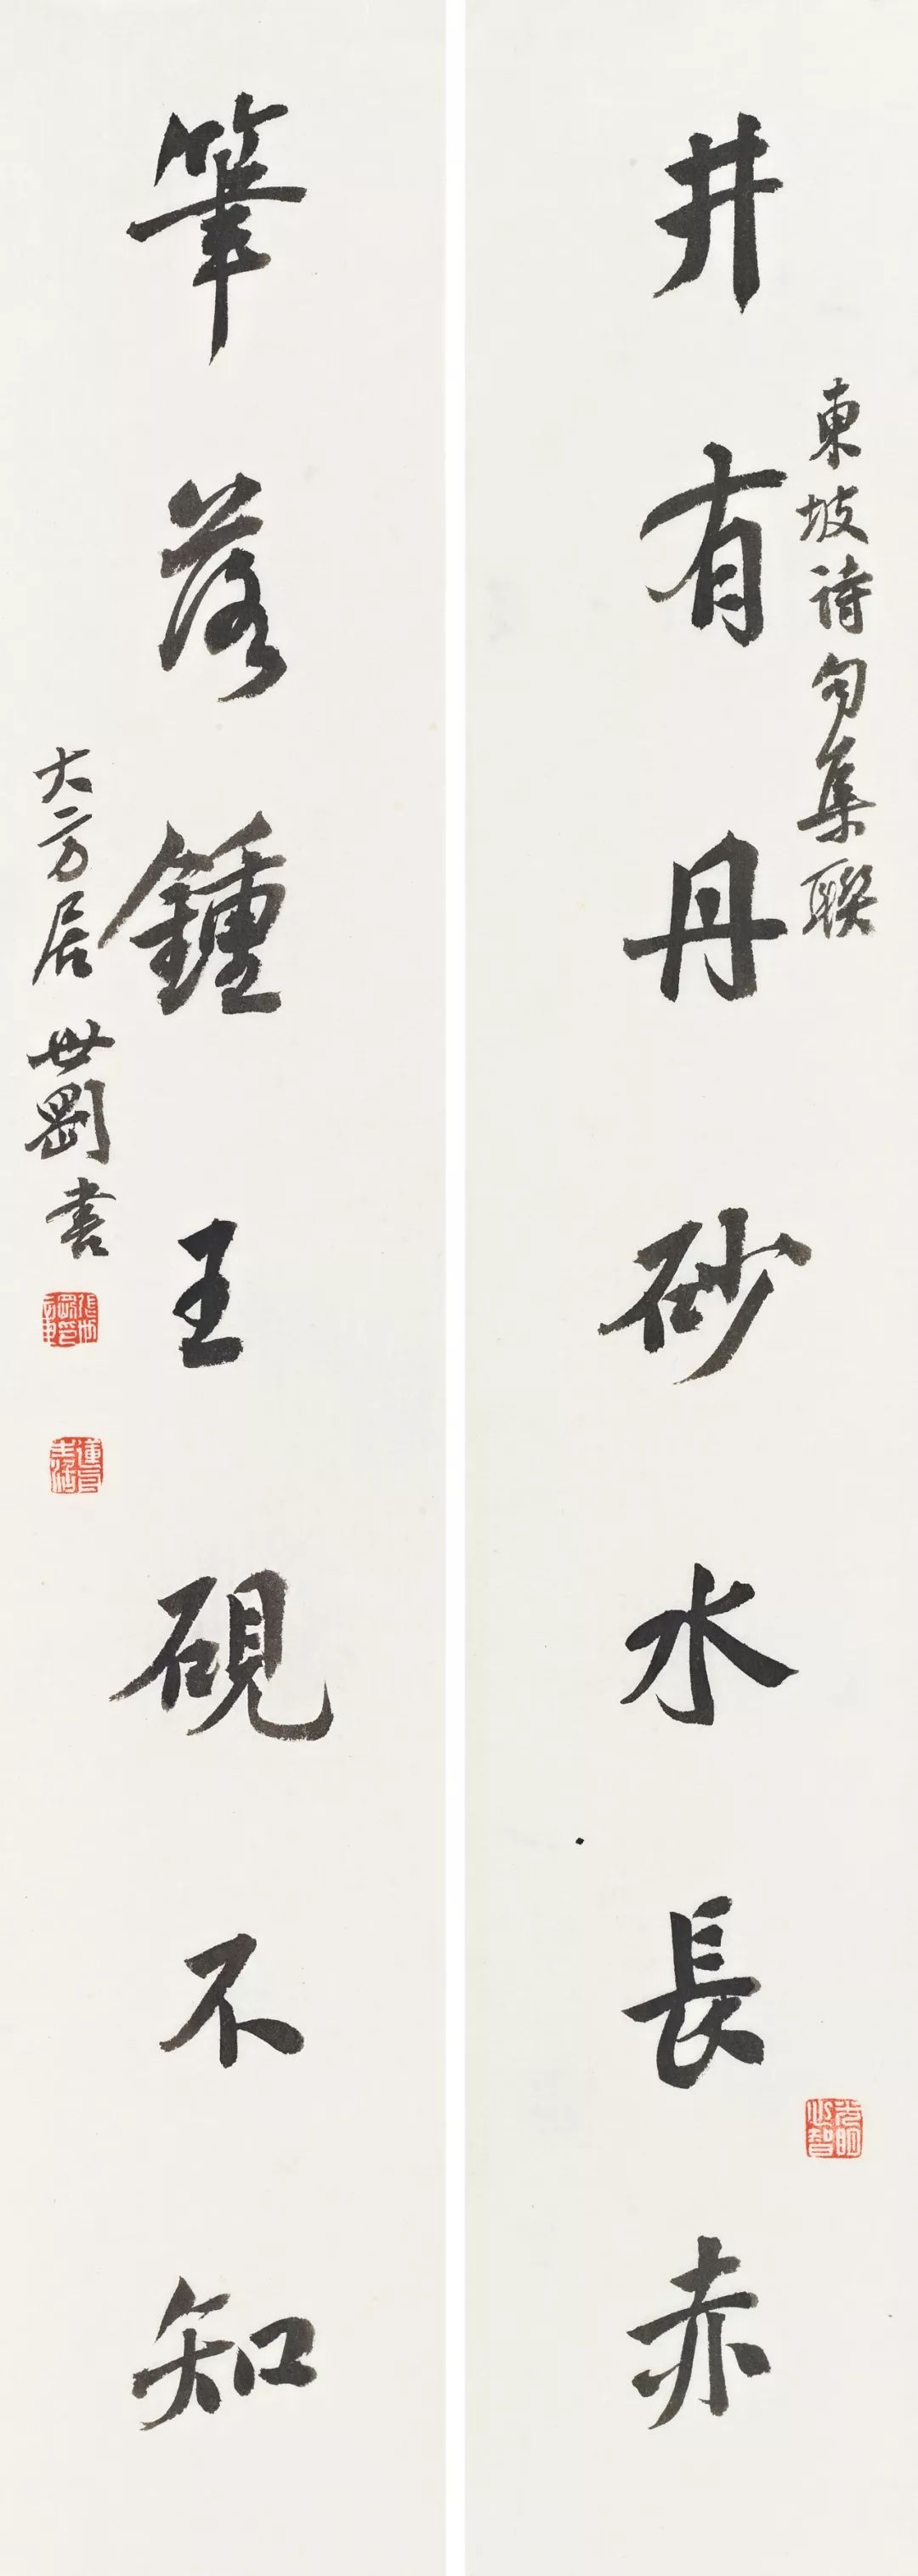 東坡詩句集聯
井有丹砂水長赤
筆落鍾王硯不知
大方居世剛書